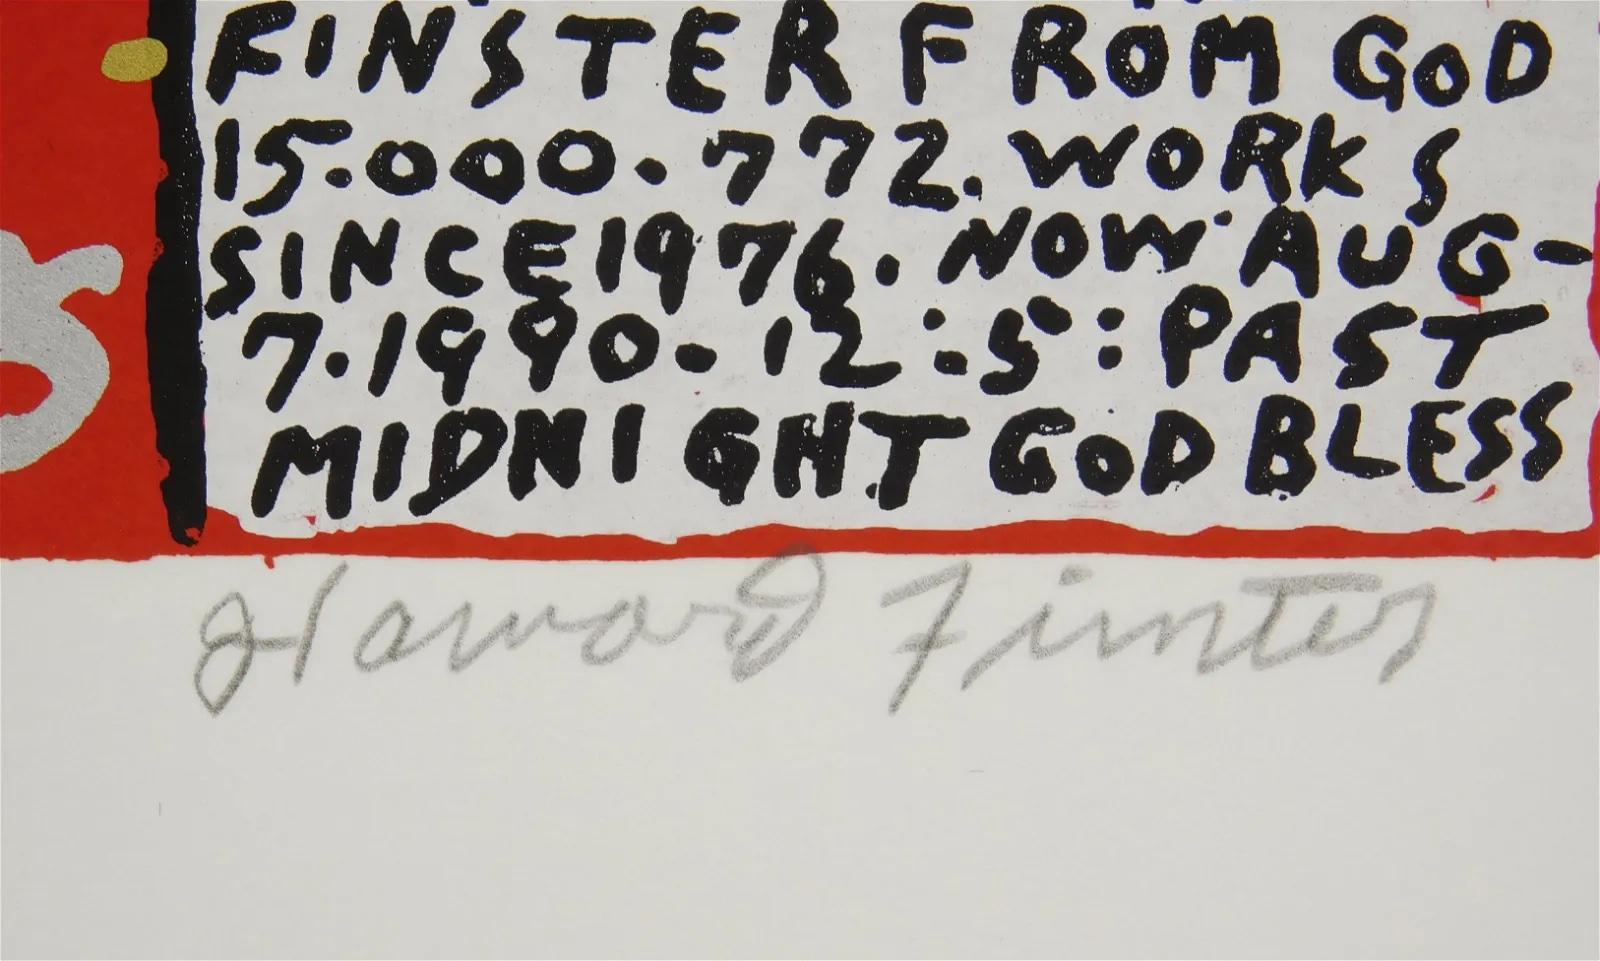 FINSTER FROM GOD
15.000.772. WORKS
SINCE 1976. NOW AUG-
7.1990-12:5: PAST
MIDNIGHT GOD BLESS
Howard Finster